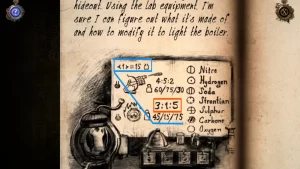 hideout. Using the lab equipment, I'm
sure I can figure out what it's made of
and how to modify it to light the boiler.
<1>=15
4:5:2
60/75/30
3:1:5
45/15/75
Nitre
Hydrogen
Soda
Strontian
Sulphur
Carbone
Oxygen